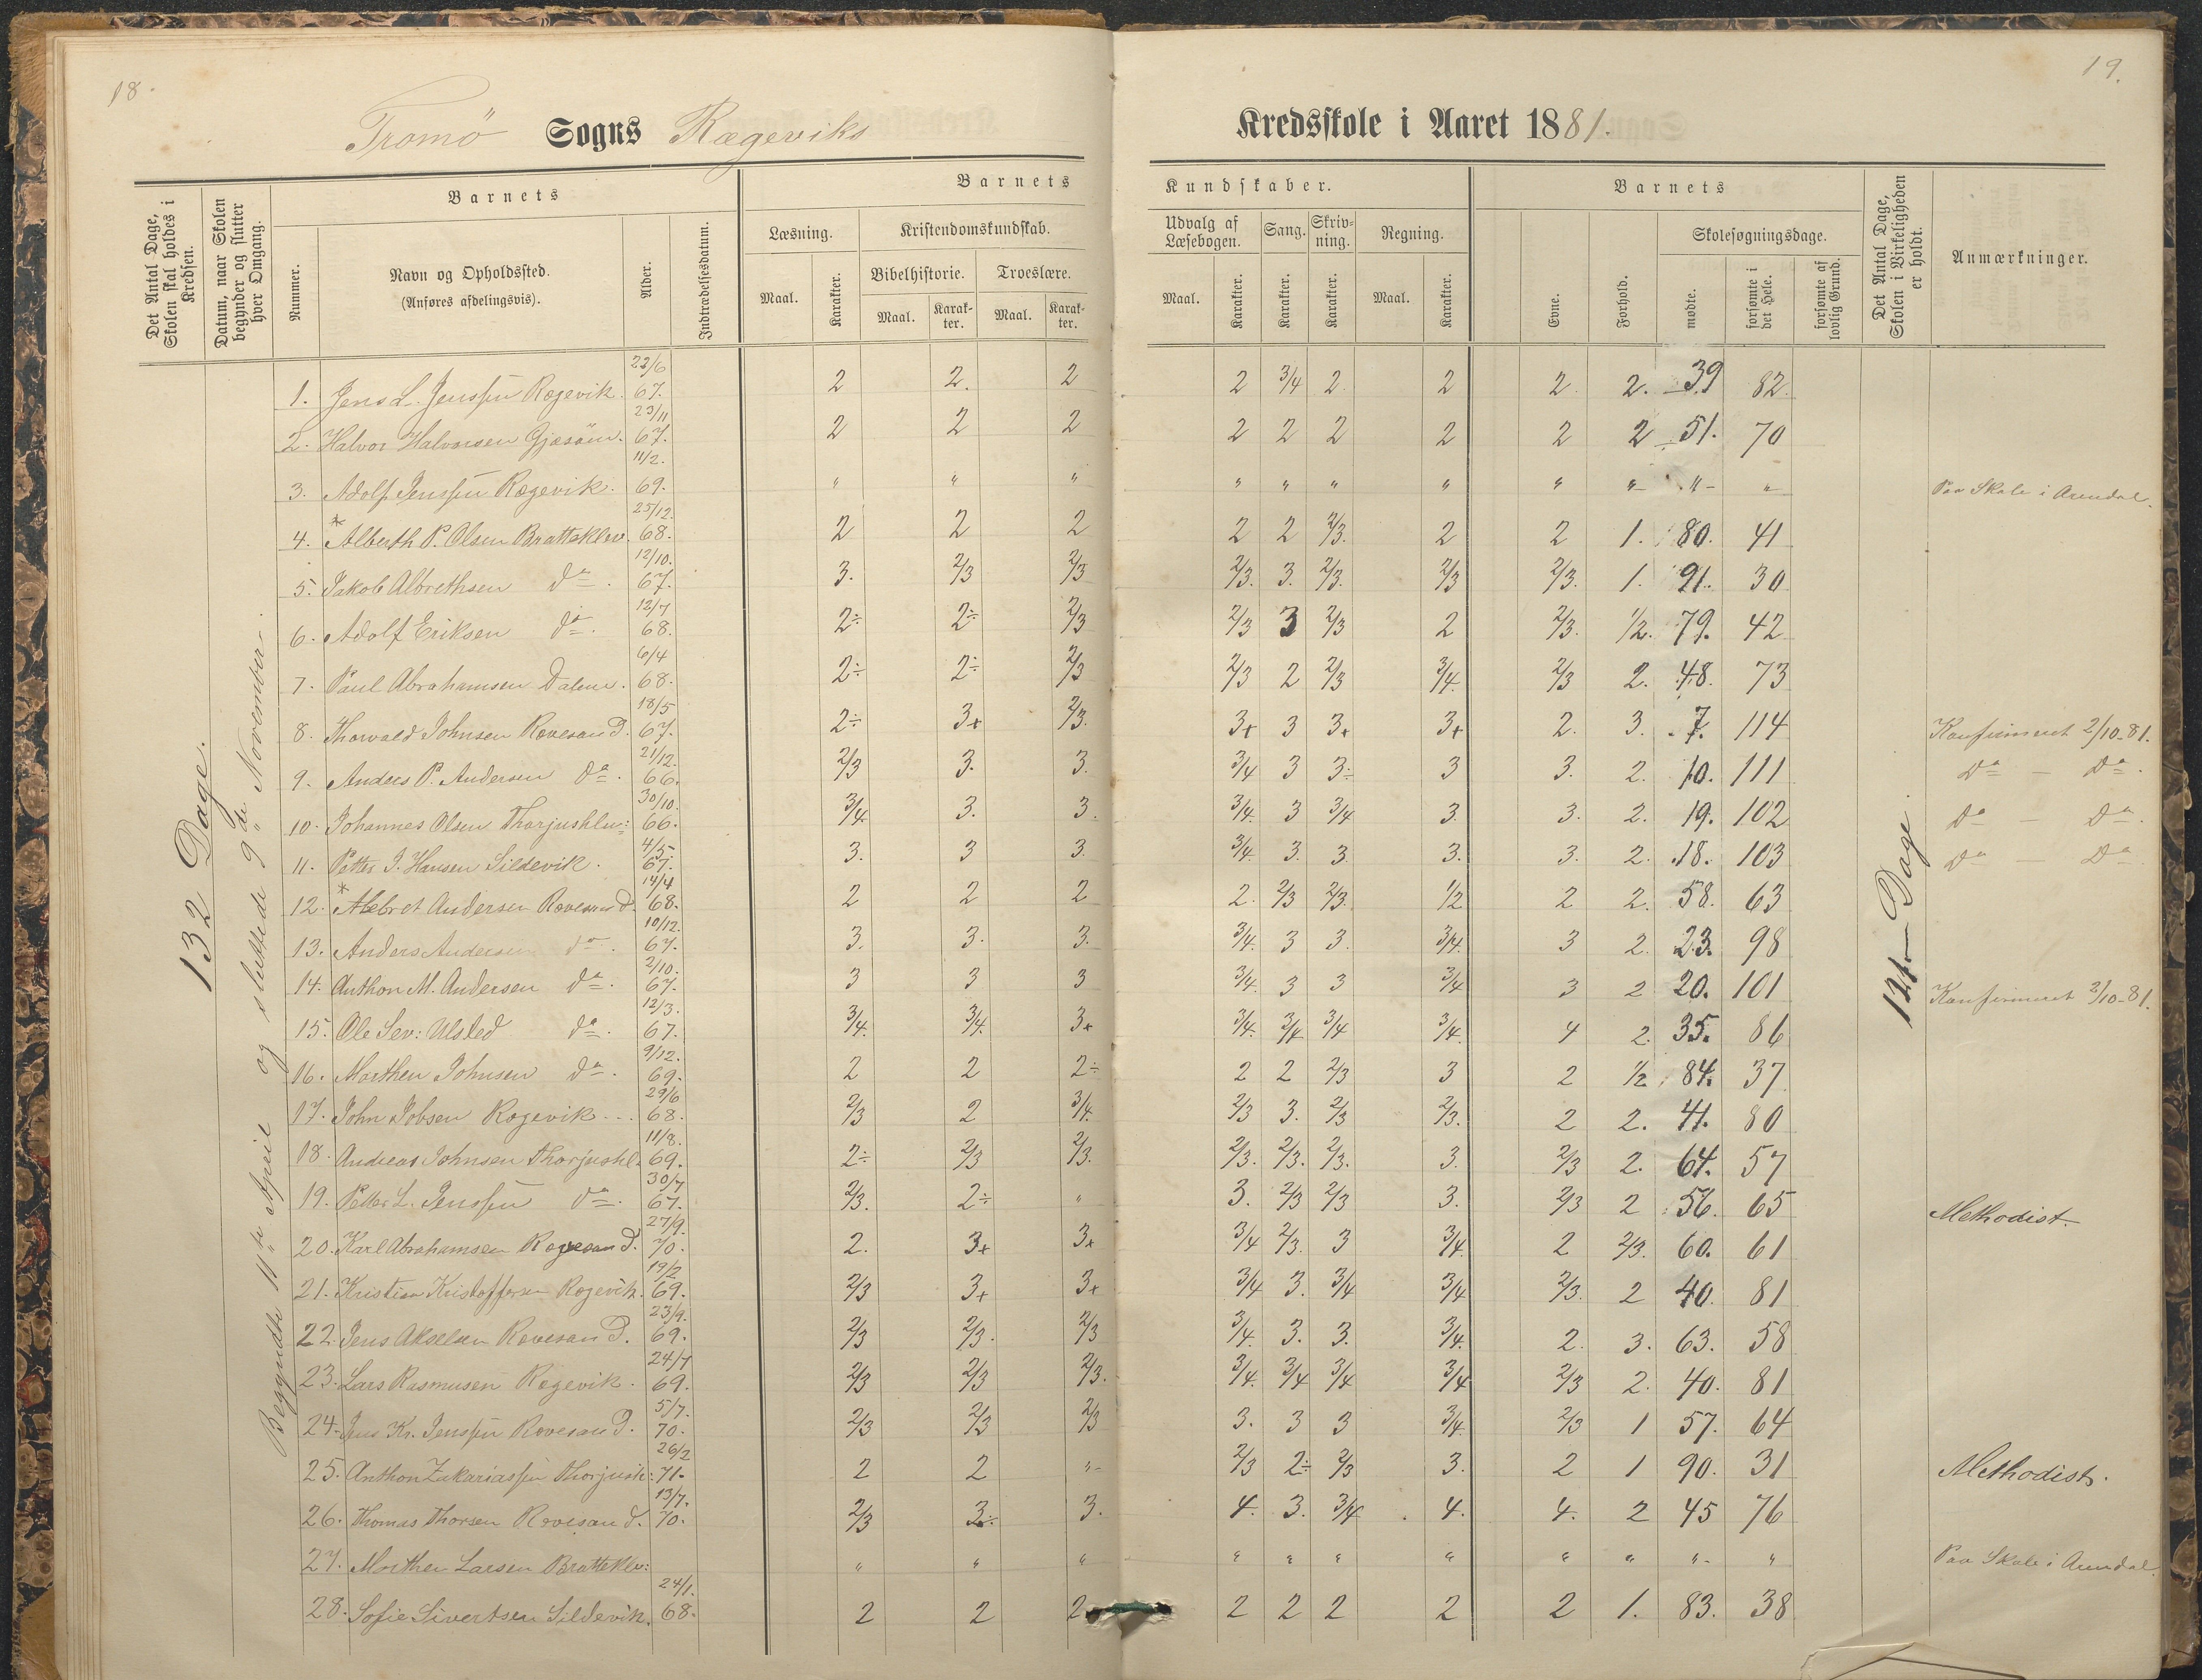 18.
19.
Tromö Sogns Rægeviks Kredsskole i Aaret 1881.
Det Antal Dage, Skolen skal holdes i Kredsen.
Datum, naar Skolen begynder og slutter hver Omgang.
Barnets
Nummer.
Navn og Opholdssted.
(Anføres afdelingsvis).
Alder.
Indtrædelsesdatum.
Barnets Kundskaber.
Læsning. Maal. Karakter.
Kristendomskundskab.
Bibelhistorie. Maal. Karak-ter.
Troeslære. Maal. Karak-ter.
Udvalg af Læsebogen. Maal. Karakter.
Sang. Karakter.
Skriv-ning. Karakter.
Regning. Maal. Karakter.
Barnets
Evne.
Forhold.
Skolesøgningsdage.
mødte.
forsømte i det Hele.
forsømte af lovlig Grund.
Det Antal Dage, Skolen i Virkeligheden er holdt.
Anmærkninger.
132 Dage.
Begyndte 11te April og sluttede 9de November.
121 Dage.
1. Jens L. Jenssen Rægevik. 22/6 67. 2 2. 2 2 3/4 2. 2 2. 2. 39 82.
2. Halvor Halvorsen Gjesöen. 23/11 67. 2 2 2 2 2 2 2 2 2 51. 70
3. Adolf Jenssen Rægevik. 11/2. 69. " " " " " " " " " " " Paa Skole i Arendal.
4. * Alberth P. Olsen Bratteklev. 25/12. 68. 2 2 2 2 2 2/3. 2 2 1. 80. 41
5. Jakob Albrethsen da. 12/10. 67. 3. 2/3 2/3 2/3. 3. 2/3. 2/3 2/3. 1. 91. 30
6. Adolf Eriksen da. 12/7 68. 2÷ 2÷ 2/3 2/3 3 2/3 2 2/3. 1/2. 79. 42
7. Paul Abrahamsen Dalene. 6/4 68. 2÷ 2÷ 2/3 2/3 2 2/3 3/4. 2/3 2. 48. 73
8. Thorvald Johnsen Revesand. 18/5 67. 2÷ 3+ 2/3. 3+ 3 3+ 3+ 2. 3. 7. 114 Konfirmeret 2/10-81.
9. Anders P. Andersen da. 21/12. 66. 2/3 3. 3. 3/4 3 3÷ 3 3. 2. 10. 111 Da — Da.
10. Johannes Olsen Thorjushl: 30/10. 66. 3/4. 3. 3. 3/4. 3 3/4 3. 3. 2. 19. 102 Da — Da.
11. Petter J. Hansen Sildevik. 4/5. 67. 3. 3 3. 3/4. 3. 3. 3. 3. 2. 18. 103 Da — Da.
12. * Alebret Andersen Revesand. 14/4 68. 2 2 2 2. 2/3 2/3. 1/2 2 2. 58. 63
13. Anders Andersen da. 10/12. 67. 3. 3. 3. 3/4. 3 3. 3/4. 3 2. 23. 98
14. Anthon M. Andersen da. 2/10. 67. 3 3 3 3/4. 3 3 3/4 3 2 20. 101 Konfirmeret 2/10-81.
15. Ole Sev: Ulsted da. 12/3. 67. 3/4. 3/4. 3+ 3/4. 3/4 3/4 3/4. 4 2. 35. 86
16. Morthen Johnsen da. 9/12. 69. 2 2 2÷ 2 2 2/3 3 2 1/2 84. 37
17. John Jobsen Rægevik. 29/6 68. 2/3 2 3/4. 2/3 3. 2/3 2/3. 2 2. 41. 80
18. Andreas Johnsen Thorjushl. 11/8. 69. 2÷ 2/3 2/3. 2/3. 2/3. 2/3. 3. 2/3 2. 64. 57
19. Petter L. Jenssen da. 30/7 67. 2/3. 2÷ " 3. 2/3 2/3 3. 2/3 2 56. 65 Methodist.
20. Karl Abrahamsen Revesand. 27/9. 70. 2. 3+ 3+ 3/4 2/3. 3 3/4. 2 2/3. 60. 61
21. Kristian Kristoffersen Rægevik. 19/2 69. 2/3 3+ 3+ 3/4 3. 3/4 3/4 2/3. 2 40. 81
22. Jens Akselsen Revesand. 23/9. 69. 2/3 2/3. 2/3 3/4. 3. 3. 3/4. 2. 3. 63. 58
23. Lars Rasmusen Rægevik. 24/7 69. 2/3 2/3 2/3. 3/4. 3/4 3/4 3/4 2/3 2. 40. 81
24. Jens Kr. Jenssen Revesand. 5/7. 70. 2/3 2/3 2/3 3. 3 3 3/4. 2/3 1 57. 64
25. Anthon Zakariassen Thorjush: 26/2 71. 2 2 " 2/3 2÷ 2/3 3. 2 1 90. 31 Methodist.
26. Thomas Thorsen Revesand. 13/7. 70. 2/3 3÷ 3. 4. 3. 3/4 4. 4. 2 45 76
27. Morthen Larsen Bratteklv: " " " " " " " " " " " Paa Skole i Arendal.
28. Sofie Sivertsen Sildevik. 24/1. 68. 2 2 2 2 2 2 2 2 1. 83. 38